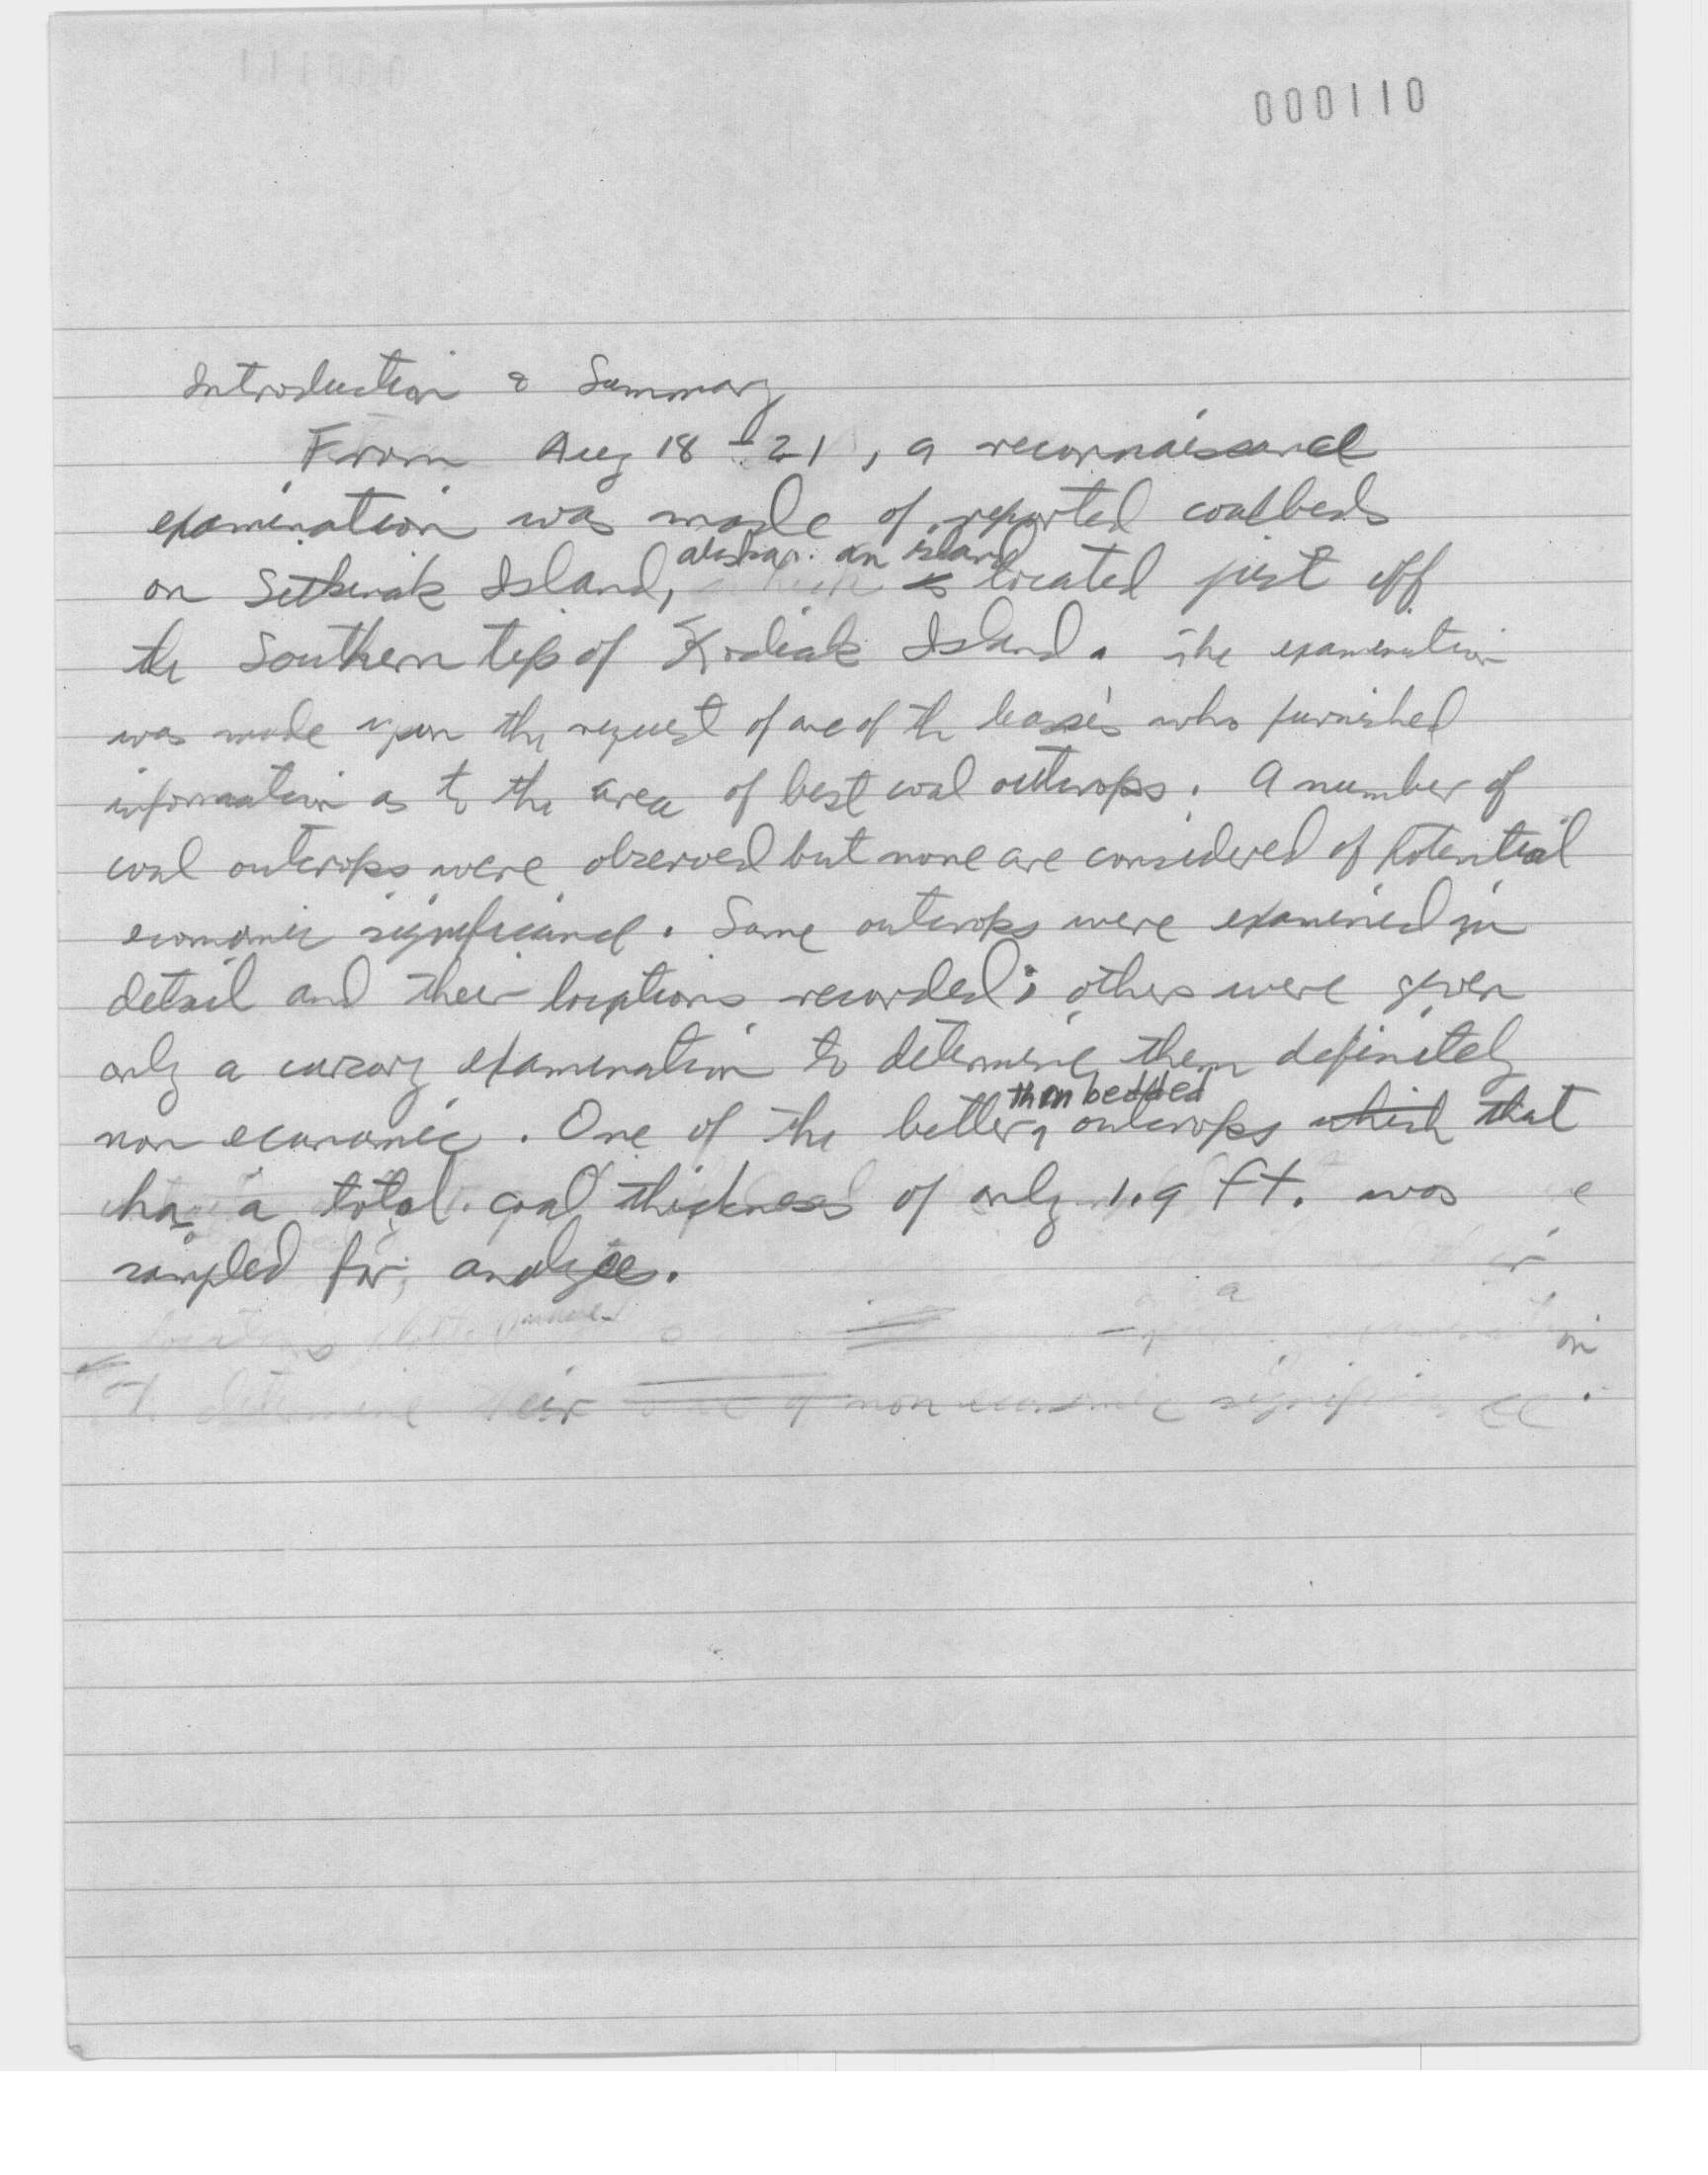 000110
Introduction & Summary
From Aug 18-21, a reconnaissance
examination was made of reported coalbeds
on Sitkinak Island, Alaska. an island located just off
the Southern tip of Kodiak Island. The examination
was made upon the request of one of the leasees who furnished
information as to the area of best coal outcrops. A number of
coal outcrops were observed but none are considered of potential
economic significance. Some outcrops were examined in
detail and their locations recorded; others were given
only a cursory examination to determine them definitely
non economic. One of the better, thin bedded outcrops which that
has a total coal thickness of only 1.9 ft. was
sampled for analyses.
determine their non economic